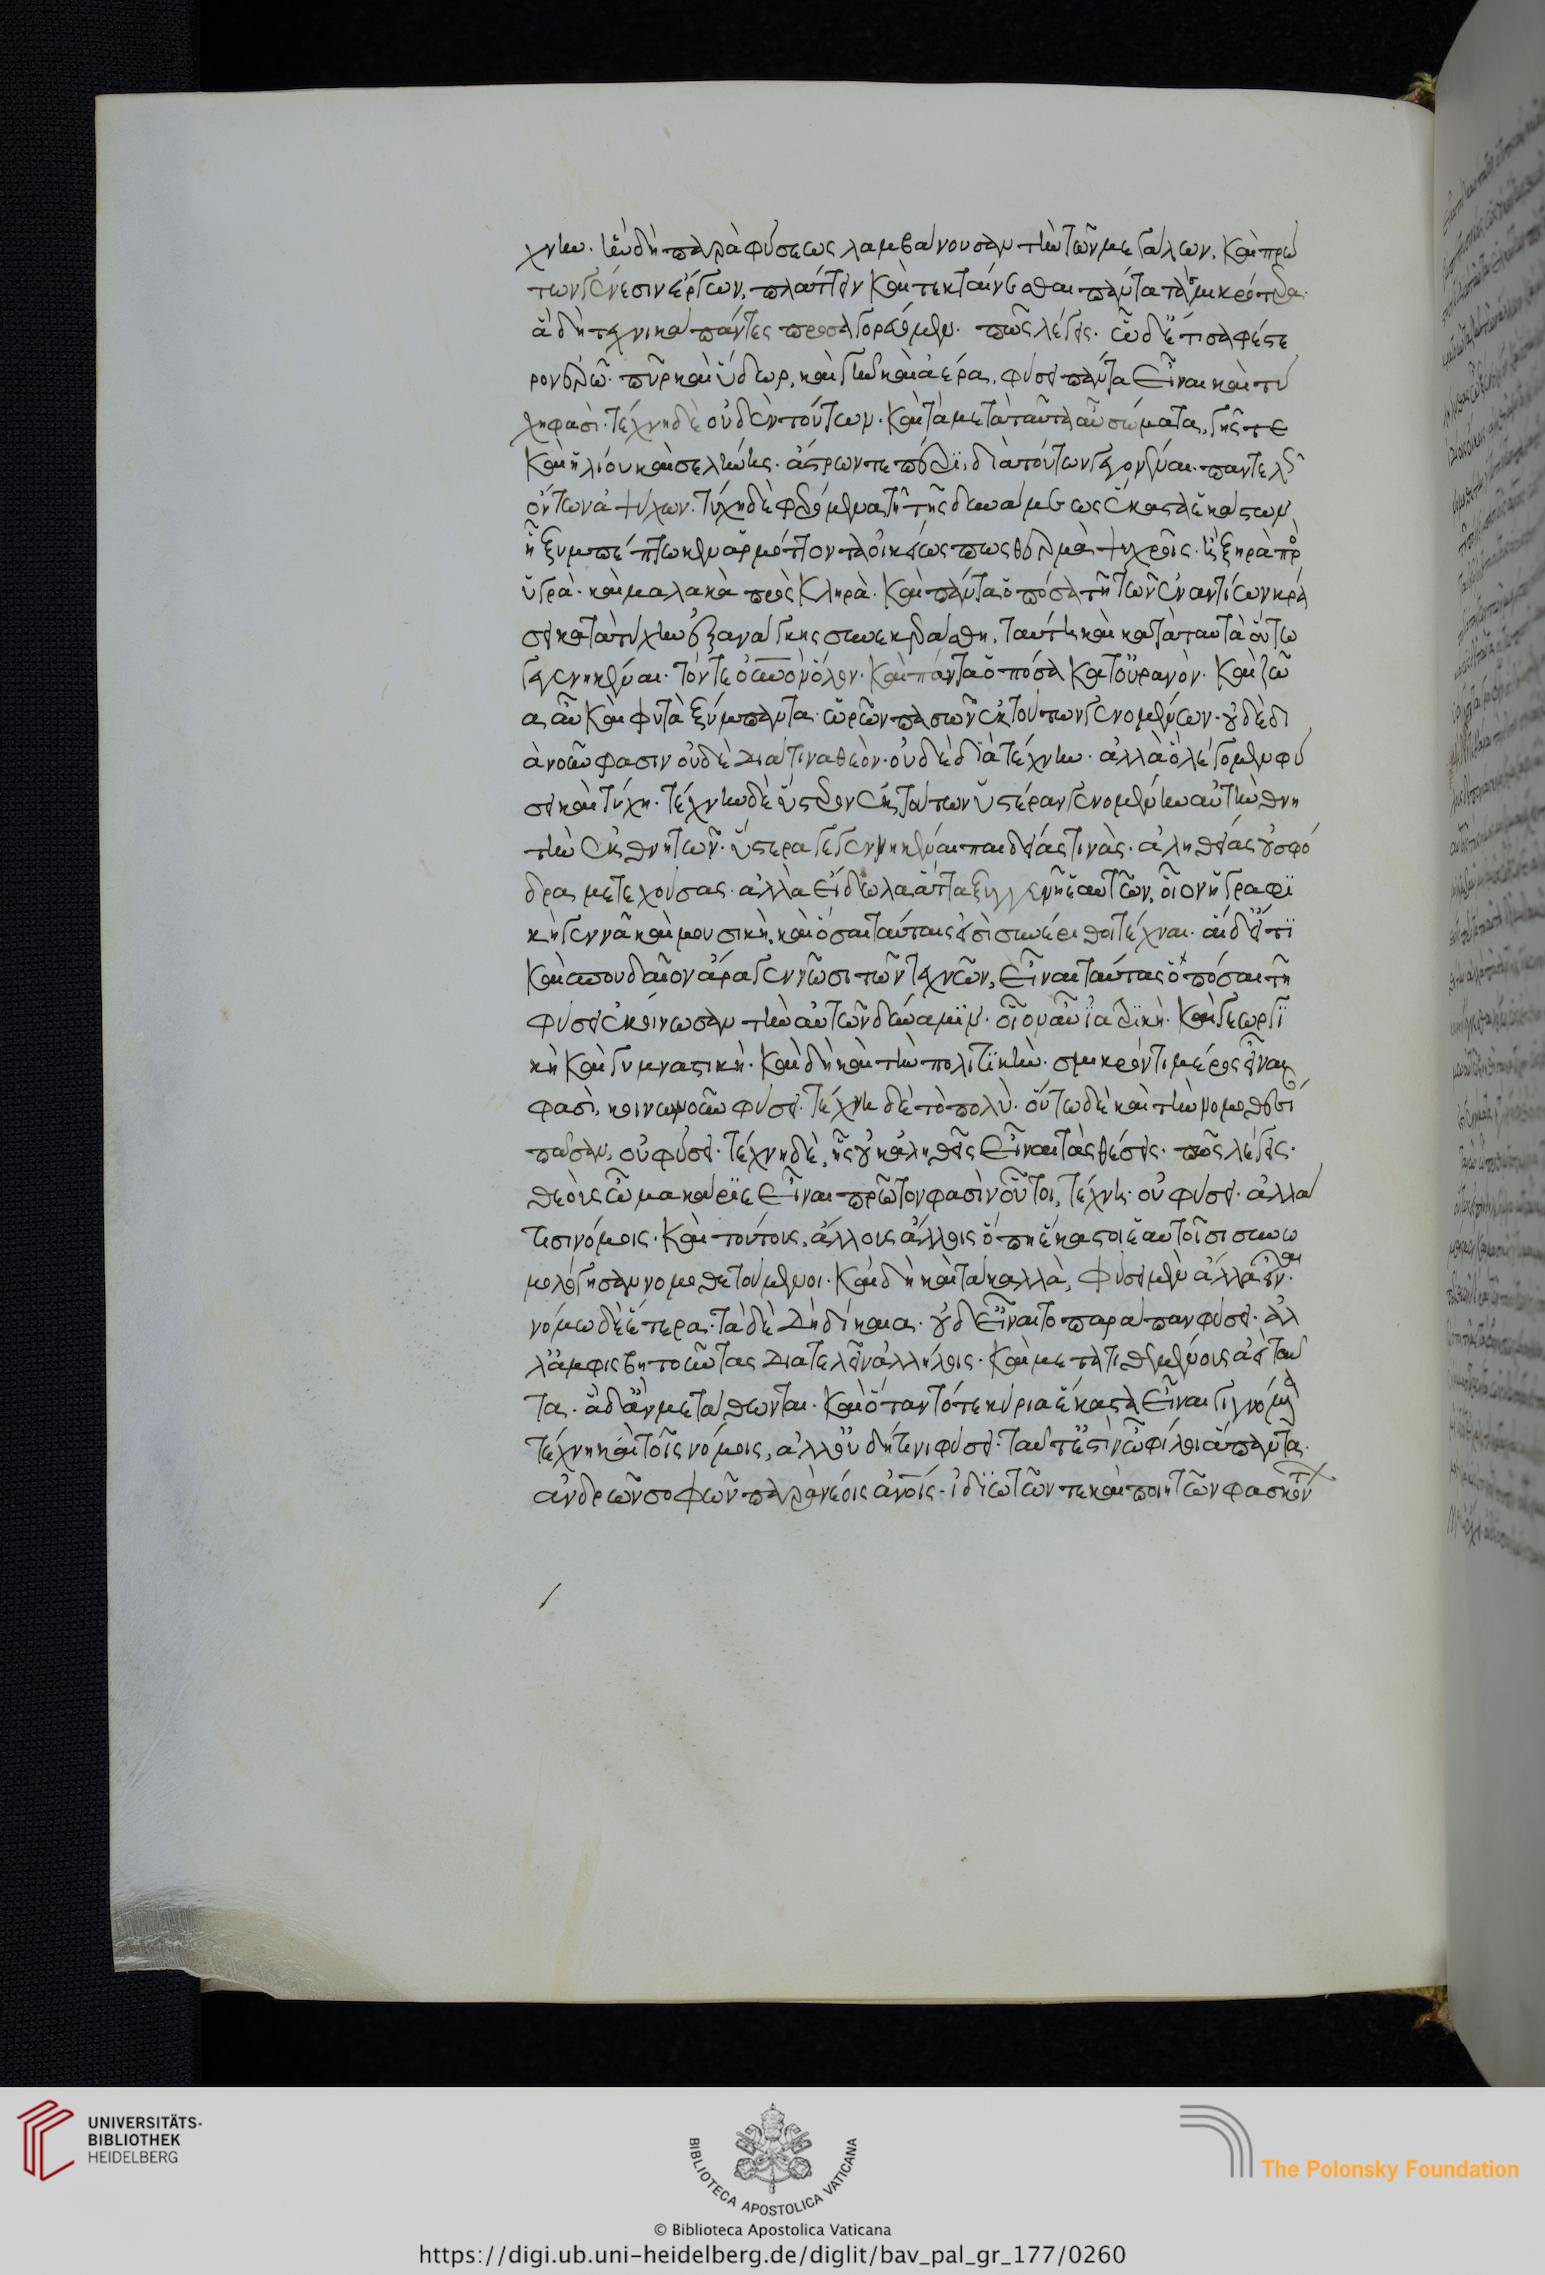 χνην. ἣν δὴ παρὰ φύσεως λαμβάνουσαν τὴν τῶν μεγάλων. καὶ πρώ
των γένεσιν ἔργων, πλάττειν καὶ τεκταίνεσθαι πάντα τὰ σμικρότερα.
ἃ δὴ τεχνικὰ πάντες προσαγορεύομεν. πῶς λέγεις. ὧδ' ἔτι σαφέστε
ρον ἐρῶ. πῦρ καὶ ὕδωρ, καὶ γῆν καὶ ἀέρα, φύσει πάντα εἶναι καὶ τύ
χῃ φασὶ. τέχνῃ δὲ οὐδὲν τούτων. καὶ τὰ μετὰ ταῦτα αὖ σώματα, γῆς τε
καὶ ἡλίου καὶ σελήνης. ἄστρων τε πέρι, διὰ τούτων γεγονέναι. παντελῶς
ὄντων ἀψύχων. τύχῃ δὲ φερόμενα τῇ τῆς δυνάμεως ἕκαστα ἑκάστων
ᾗ ξυμπέπτωκεν ἁρμόττοντα οἰκείως πως θερμὰ ψυχροῖς. ἢ ξηρὰ πρὸς
ὑγρὰ. καὶ μαλακὰ πρὸς σκληρὰ. καὶ πάντα ὁπόσα τῇ τῶν ἐναντίων κρά
σει κατὰ τύχην ἐξ ἀνάγκης συνεκεράσθη, ταύτῃ καὶ κατὰ ταυτὰ οὕτω
γεγενηκέναι. τόν τε οὐνὸν ὅλον. καὶ πάντα ὁπόσα κατ' οὐρανὸν. καὶ ζῶ
α αὖ καὶ φυτὰ ξύμπαντα. ὡρῶν πασῶν ἐκ τούτων γενομένων. οὐ δὲ δι
ὰ νοῦν φασιν οὐδὲ διά τινα θεὸν. οὐδὲ διὰ τέχνην. ἀλλὰ ὃ λέγομεν φύ
σει καὶ τύχῃ. τέχνην δὲ ὕστερον ἐκ τούτων ὑστέραν γενομένην αὐτὴν θνη
τὴν ἐκ θνητῶν. ὕστερα γεγεννηκέναι παιδιάς τινὰς. ἀληθείας οὐ σφό
δρα μετεχούσας. ἀλλὰ εἴδωλα ἄττα ξυγγενῆ ἑαυτῶν, οἷον ἡ γραφι
κὴ γεννᾷ καὶ μουσικὴ, καὶ ὅσαι ταύταις εἰσὶ συνέριθοι τέχναι. αἳ δέ τι
καὶ σπουδαῖον ἄρα γεννῶσι τῶν τεχνῶν, εἶναι ταύτας ὁπόσαι τῇ
φύσει ἐκοίνωσαν τὴν αὐτῶν δύναμιν. οἷον αὖ ἰατρικὴ. καὶ γεωργι
κὴ καὶ γυμναστικὴ. καὶ δὴ καὶ τὴν πολιτικὴν. σμικρόν τι μέρος εἶναι
φασὶ, κοινωνοῦν φύσει. τέχνῃ δὲ τὸ πολὺ. οὕτω δὲ καὶ τὴν νομοθεσί
πᾶσαν, οὐ φύσει. τέχνῃ δὲ, ἧς οὐκ ἀληθεῖς εἶναι τὰς θέσεις. πῶς λέγεις.
θεοὺς ὦ μακάριε εἶναι πρῶτον φασὶν οὗτοι, τέχνῃ. οὐ φύσει. ἀλλά
τισι νόμοις. καὶ τούτους, ἄλλους ἄλλοις ὅπῃ ἕκαστοι ἑαυτοῖσι συνω
μολόγησαν νομοθετούμενοι. καὶ δὴ καὶ τὰ καλλὰ, φύσει μὲν ἄλλα εἶναι.
νόμῳ δὲ ἕτερα. τὰ δὲ δὴ δίκαια. οὐδ' εἶναι τοπαράπαν φύσει. ἀλ
λ' ἀμφισβητοῦντας διατελεῖν ἀλλήλοις. καὶ μετατιθεμένους ἀεὶ ταῦ
τα. ἃ δ' ἂν μετάθωνται. καὶ ὅταν τότε κύρια ἕκαστα εἶναι γιγνόμενα
τέχνῃ καὶ τοῖς νόμοις, ἀλλ' οὐ δή τινι φύσει. ταῦτ' ἐστὶν ὦ φίλοι ἅπαντα.
ἀνδρῶν σοφῶν παρὰ νέοις ἀνοις. ἰδιωτῶν τε καὶ ποιητῶν φασκόντων
UNIVERSITÄTS-
BIBLIOTHEK
HEIDELBERG
BIBLIOTECA APOSTOLICA VATICANA
The Polonsky Foundation
© Biblioteca Apostolica Vaticana
https://digi.ub.uni-heidelberg.de/diglit/bav_pal_gr_177/0260